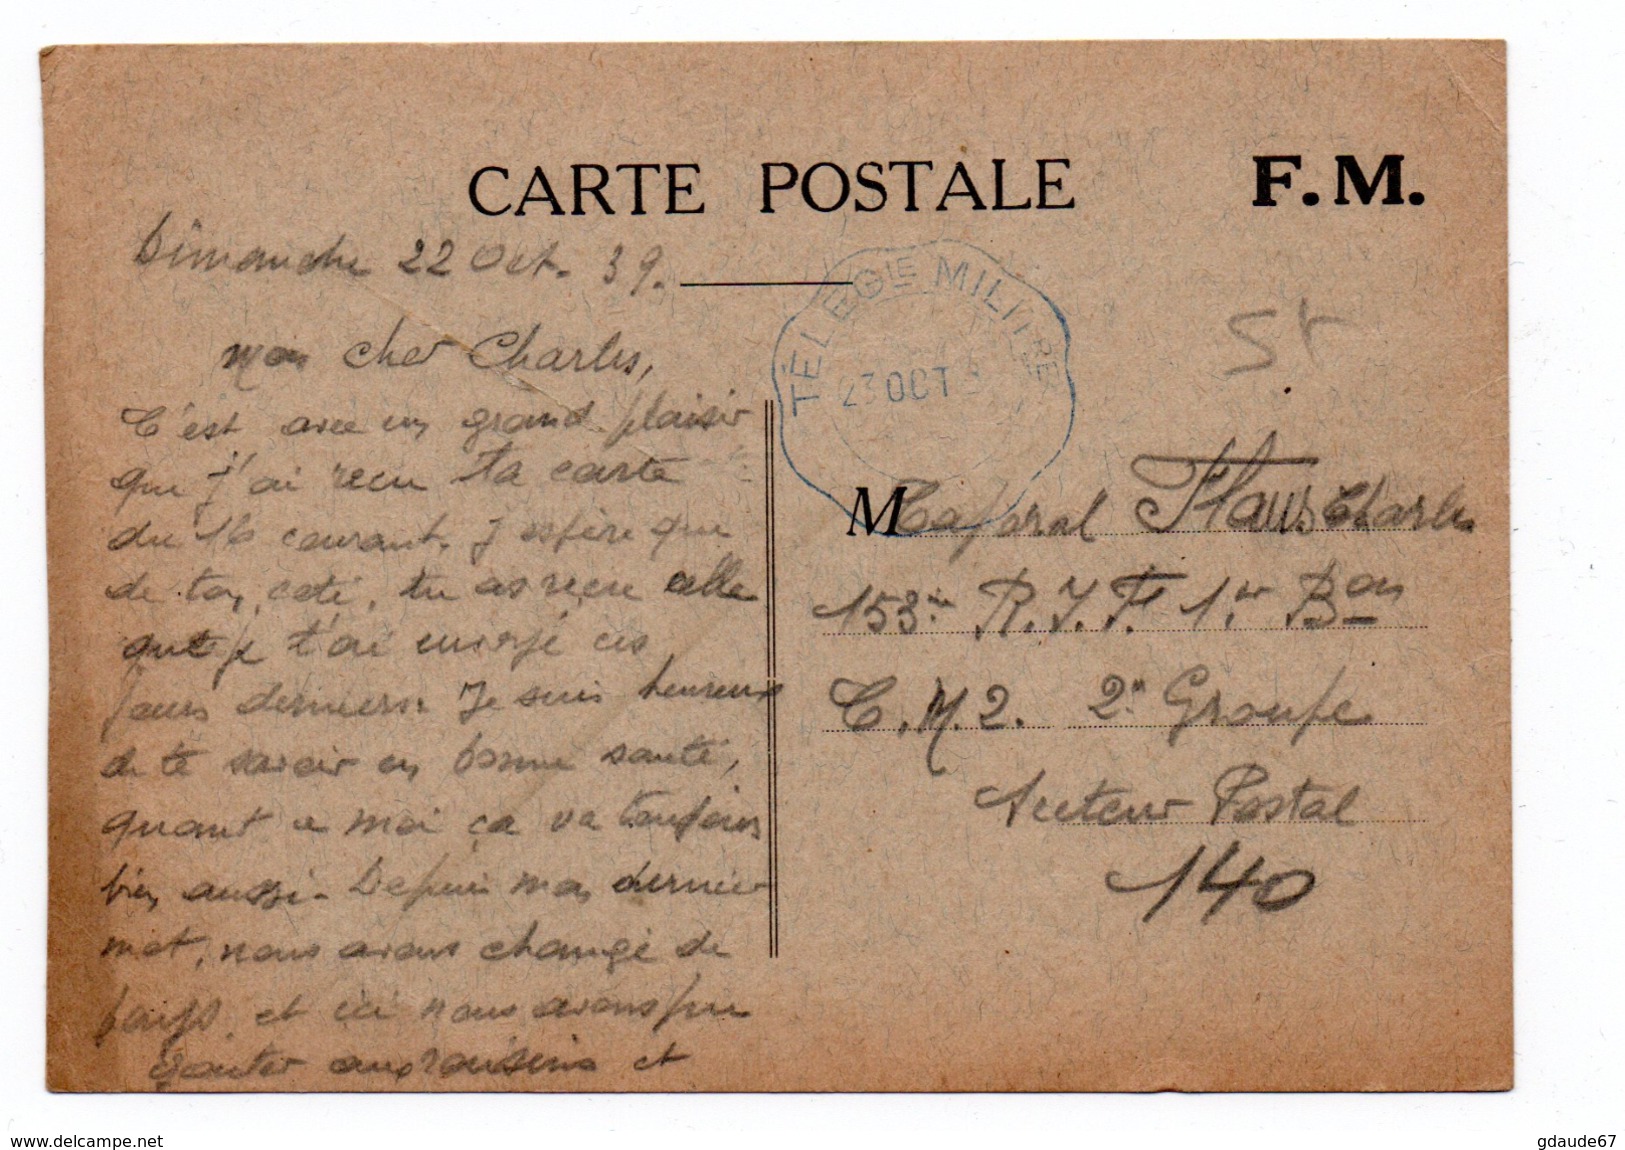 CARTE POSTALE
F.M.
Dimanche 22 Oct. 39.
TÉLÉGIE MILITRE
23 OCT 3
Mon cher Charles,
C'est avec un grand plaisir
que j'ai reçu ta carte
du 16 courant. J'espère que
de ton coté, tu as reçu celle
que je t'ai envoyé ces
jours derniers. Je suis heureux
de te savoir en bonne santé,
quant a moi ça va toujours
bien aussi. Depuis mon dernier
mot, nous avons changé de
pays, et ici nous avons pu
gouter aux raisins et
M Caporal Charles
153me R.I.F. 1er Bon
C.M.2. 2e Groupe
Secteur Postal
140
www.delcampe.net
gdaude67